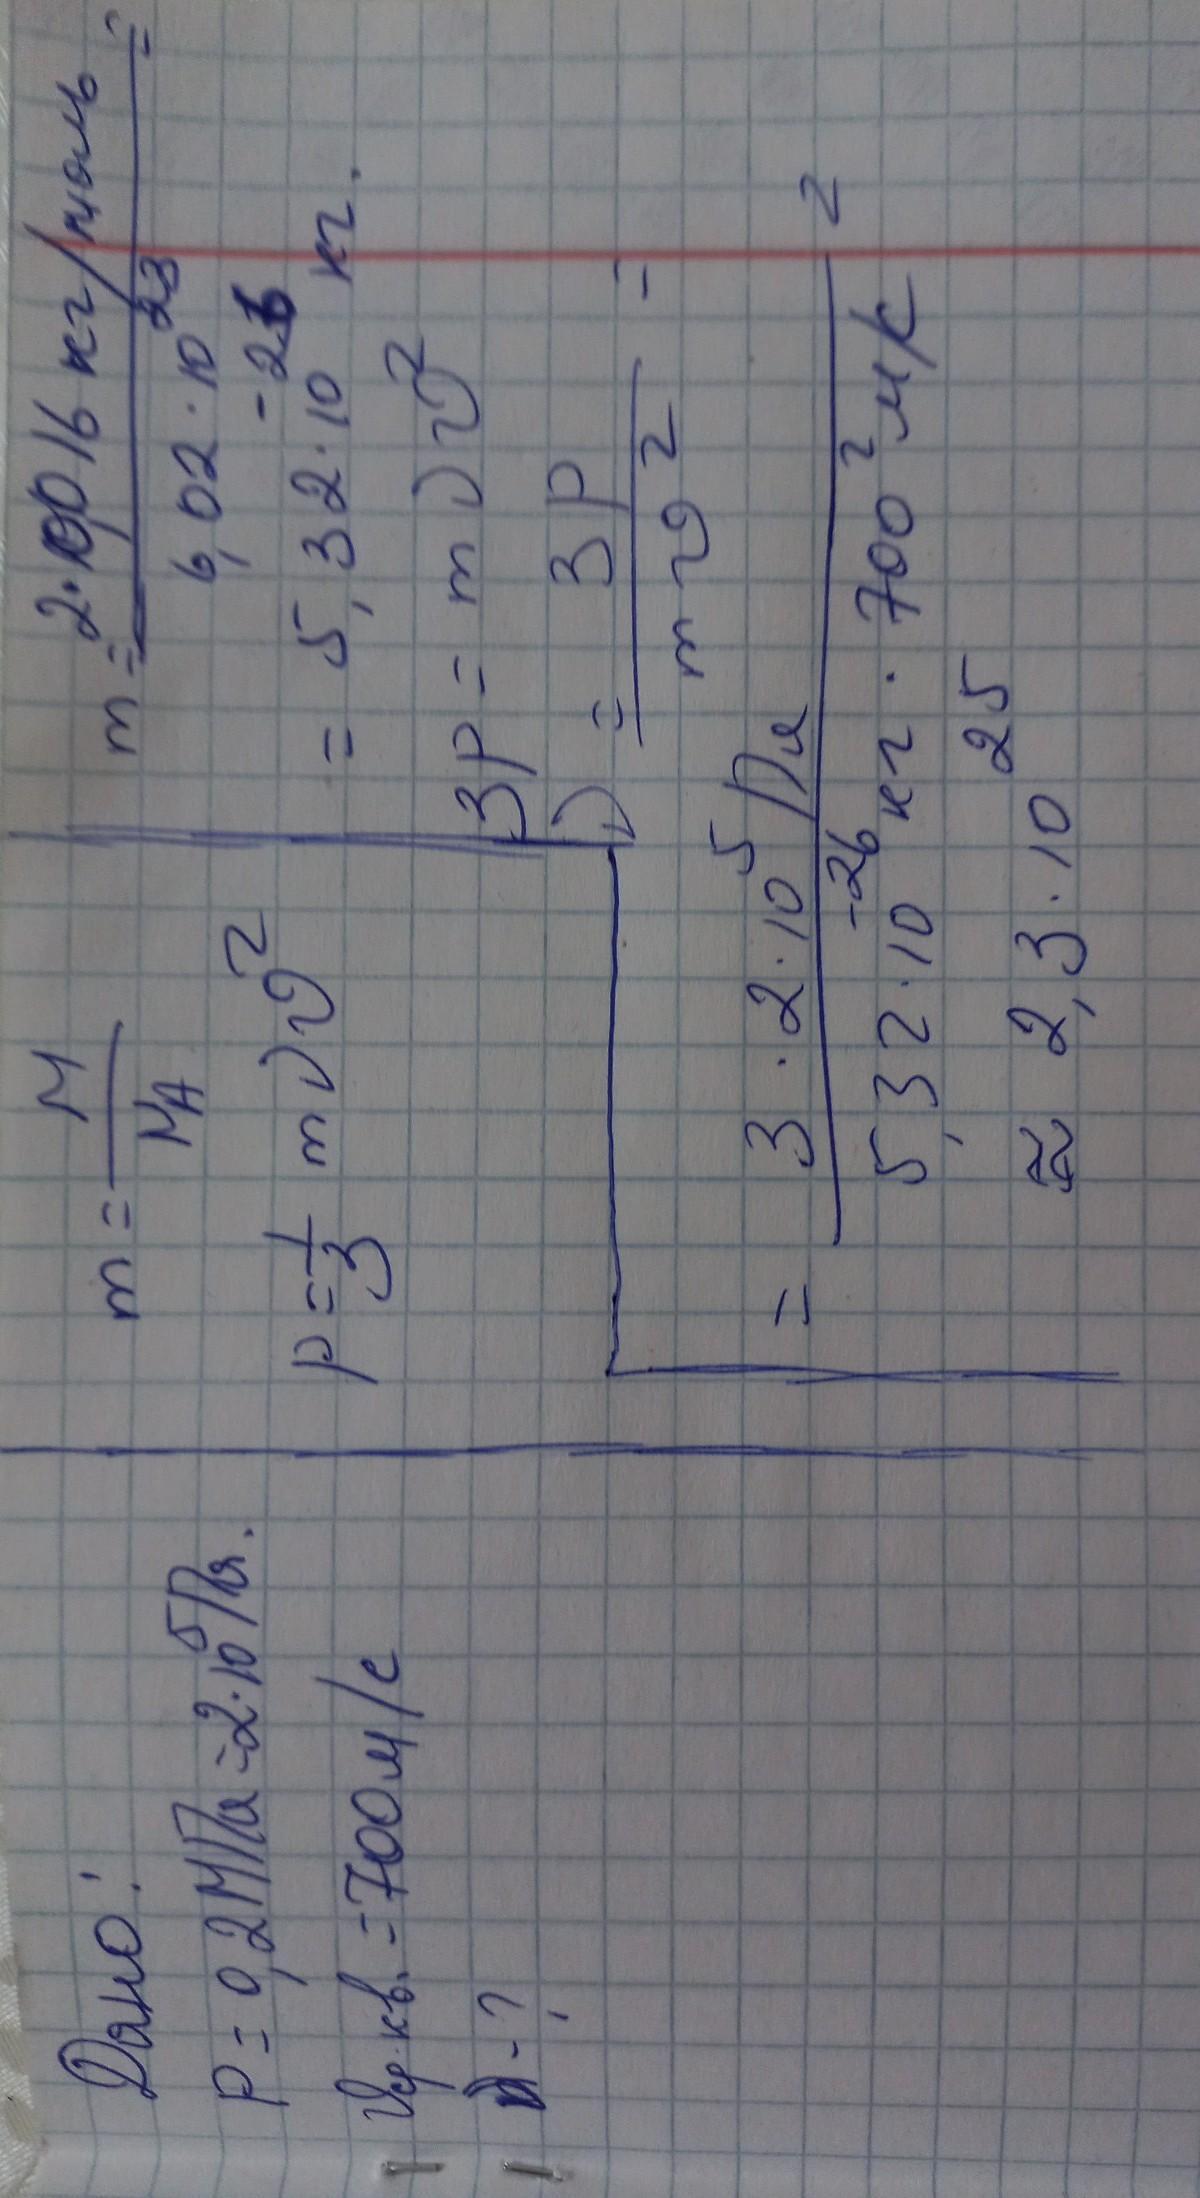 Дано:
P = 0,2 МПа = 2·10⁵ Па.
Vср.кв. = 700 м/с
n - ?
m = M / NA
p = 1/3 m n v²
m = 2·0,016 кг/моль / 6,02·10²³ =
= 5,32·10⁻²⁶ кг.
3p = m n v²
n = 3p / m v² =
= 3·2·10⁵ Па / 5,32·10⁻²⁶ кг · 700² м/с ²
≈ 2,3·10²⁵